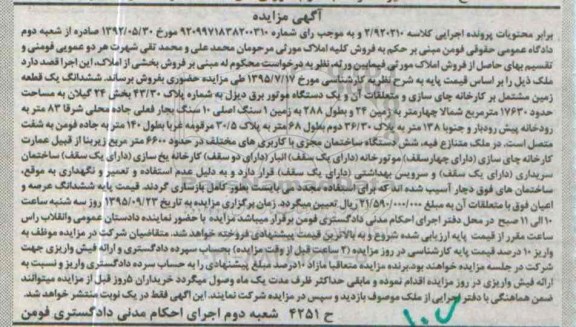 آگهی مزایده
برابر محتویات پرونده اجرایی کلاسه ۲/۹۲۰۲۱۰ و به موجب رای شماره ۹۲۰۹۹۷۱۸۳۸۲۰۰۳۱۰ مورخ ۱۳۹۲/۰۵/۳۰ صادره از شعبه دوم
دادگاه عمومی حقوقی فومن مبنی بر حکم به فروش کلیه املاک مورثی مرحومان محمد علی و محمد تقی شهرت هر دو عمویی فومنی و
تقسیم بهای حاصل از فروش املاک مورثی فیمابین ورثه، نظر به درخواست محکوم له مبنی بر فروش بخشی از املاک، این اجرا قصد دارد
ملک ذیل را بر اساس قیمت پایه به شرح نظریه کارشناسی مورخ ۱۳۹۵/۷/۱۷ طی مزایده حضوری بفروش برساند. ششدانگ یک قطعه
زمین مشتمل بر کارخانه چای سازی و متعلقات آن و یک دستگاه موتور برق دیزل به شماره پلاک ۴۳/۳۰ بخش ۲۴ گیلان به مساحت
حدود ۱۷۶۳۰ مترمربع شمالا چهارمتر به زمین ۲۴ و بطول ۲۸۸ به زمین ۱ سنگ اصلی ۱۰ سنگ بجار فعلی جاده محلی شرقا ۸۳ متر به
رودخانه پیش رودبار و جنوبا ۱۳۸ متر به پلاک ۳۶/۳۰ دوم بطول ۶۸ متر به پلاک ۳۰/۵ مرقومه غربا بطول ۱۴۰ متر به جاده فومن به شفت
متصل است. در ملک متنازع فیه، شش دستگاه ساختمان مجزی با کاربری های مختلف در حدود ۶۶۰۰ متر مربع زیربنا از قبیل عمارت
کارخانه چای سازی (دارای چهارسقف) موتورخانه (دارای یک سقف) انبار (دارای دو سقف) کارخانه یخ سازی (دارای یک سقف) ساختمان
سریداری (دارای یک سقف) و سرویس بهداشتی (دارای یک سقف) قرار دارد و به دلیل عدم استفاده و تعمیر و نگهداری به موقع،
ساختمان های فوق دچار آسیب شده اند که برای استفاده مجدد می بایست بطور کامل بازسازی گردند. قیمت پایه ششدانگ عرصه و
اعیان فوق با متعلقات آن به مبلغ ۲۱/۵۹۰/۰۰۰/۰۰۰ ریال تعیین میگردد. زمان برگزاری مزایده به تاریخ ۱۳۹۵/۰۹/۲۳ روز سه شنبه ساعت
۱۰ الی ۱۱ صبح در محل دفتر اجرای احکام مدنی دادگستری فومن برقرار میباشد مزایده با حضور نماینده دادستان عمومی وانقلاب راس
ساعت مقرر از قیمت پایه ارزیابی شده شروع و به بالاترین قیمت پیشنهادی فروخته خواهد شد. متقاضیان شرکت در مزایده موظف به
واریز ۱۰ درصد قیمت پایه کارشناسی در روز مزایده (۲ ساعت قبل از وقت مزایده) بحساب سپرده دادگستری و ارائه فیش واریزی جهت
شرکت در جلسه مزایده خواهند بود. برنده مزایده متعاقبا مازاد ۱۰ درصد مبلغ پیشنهادی را به حساب سپرده دادگستری واریز و نسبت به
ارائه فیش واریزی در روز مزایده اقدام نموده و مابقی حداکثر ظرف مدت یک ماه وصول میگردد خریداران ۵ روز قبل از مزایده میتوانند
ضمن هماهنگی با دفتر اجرایی از ملک موصوف بازدید و سپس در مزایده شرکت نمایند. این آگهی فقط در یک نوبت منتشر خواهد شد.
ح ۴۲۵۱ شعبه دوم اجرای احکام مدنی دادگستری فومن